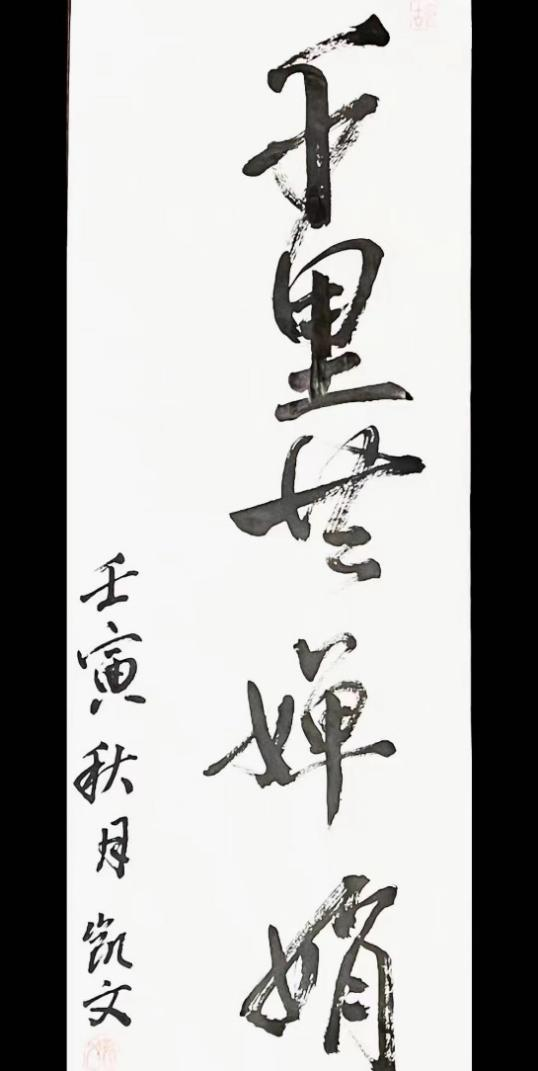 千里共婵娟
壬寅秋月凯文